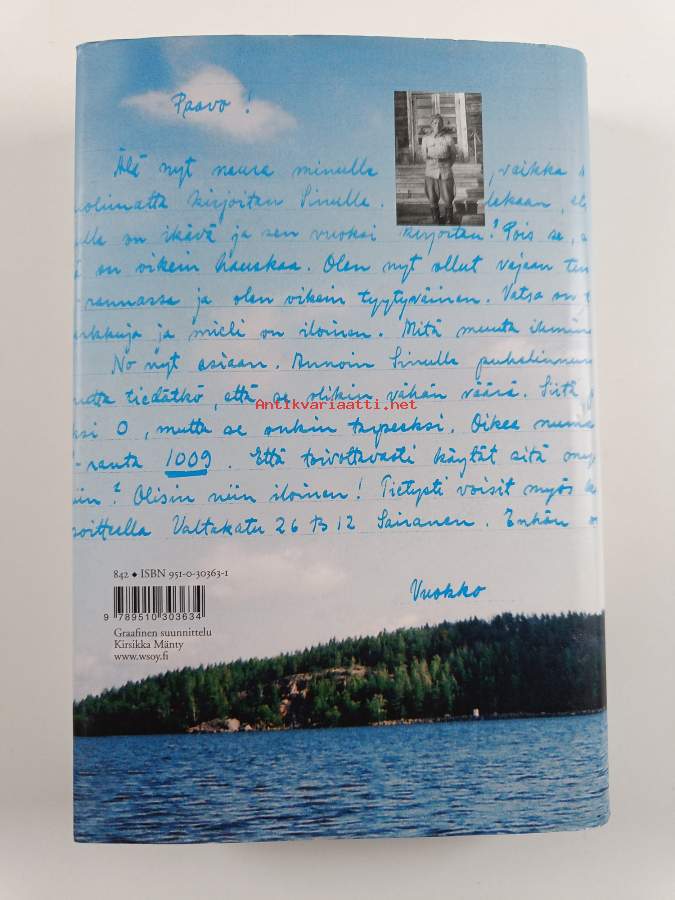 Paavo!
Älä nyt naura minulle , vaikka
kirjoitan Sinulle. lekaan,
on ikävä ja sen vuoksi kirjoitan! Pois se,
on oikein hauskaa. Olen nyt ollut vajaan
-rannassa ja olen oikein tyytyväinen. Vatsa on
ja mieli on iloinen. Mitä muuta
No nyt asiaan. Annoin Sinulle
tiedätkö, että se olikin vähän väärä. Siitä
0, mutta se onkin tarpeeksi. Oikea
-ranta 1009. Että toivottavasti käytät sitä
? Olisin niin iloinen! Tietysti voisit myös
soitteella Valtakatu 26 B 12 Sairanen. Enhän
Vuokko
Antikvariaatti.net
842 ◆ ISBN 951-0-30363-1
9 789510 303634
Graafinen suunnittelu
Kirsikka Mänty
www.wsoy.fi